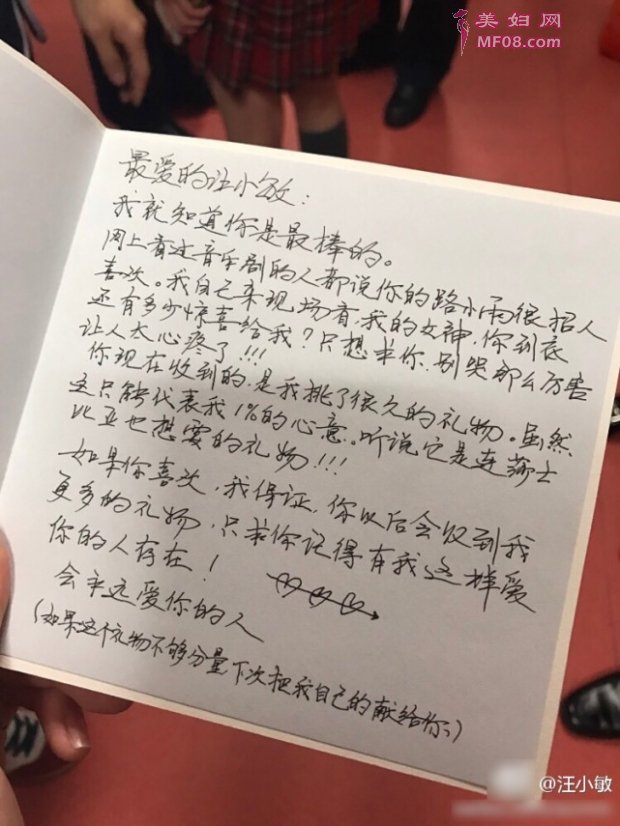 美妇网
MF08.com
最爱的汪小敏:
我就知道你是最棒的。
网上看过音乐剧的人都说你的路小雨很招人
喜欢。我自己来现场看,我的女神,你到底
还有多少惊喜给我?只想求你,别哭那么厉害
让人太心疼了!!!
你现在收到的,是我挑了很久的礼物。虽然
这只能代表我1%的心意。听说它是连莎士
比亚也想要的礼物!!!
如果你喜欢,我保证,你以后会收到我
更多的礼物,只求你记得有我这样爱
你的人存在!
会永远爱你的人
(如果这个礼物不够分量下次把我自己的献给你:)
@汪小敏